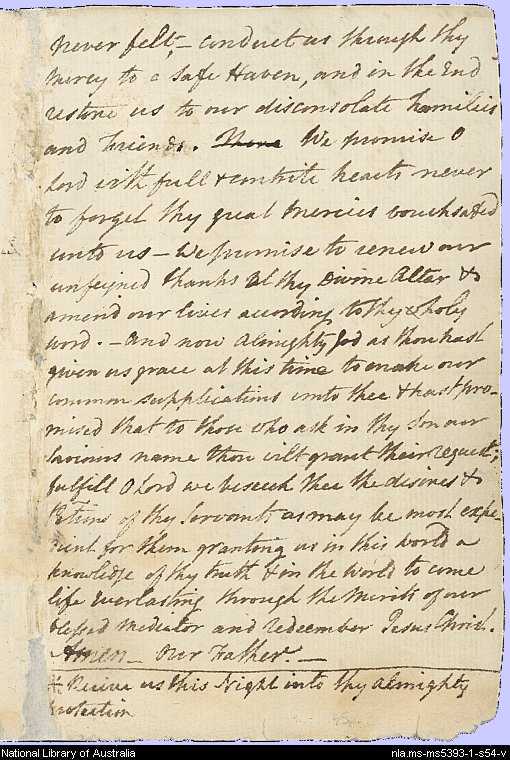 never felt, – conduct us through thy
mercy to a safe Haven, and in the End
restore us to our disconsolate families
and friends. We promise O
Lord with full & contrite hearts never
to forget thy great mercies vouchsafed
unto us – We promise to renew our
unfeigned thanks at thy Divine Altar &
amend our lives according to thy holy
word. – and now almighty God as thou hast
given us grace at this time to make our
common supplications unto thee & hast pro-
mised that to those who ask in thy Son our
Saviours name thou wilt grant their request,
fulfill O Lord we beseech thee the desires &
of thy Servants as may be most expe-
dient for them granting us in this world a
knowledge of thy truth & in the World to come
life Everlasting through the Merits of our
blessed Mediator and redeemer Jesus Christ.
Amen – Our Father. –
Receive us this Night into thy almighty
protection
National Library of Australia
nla.ms-ms5393-1-s54-v